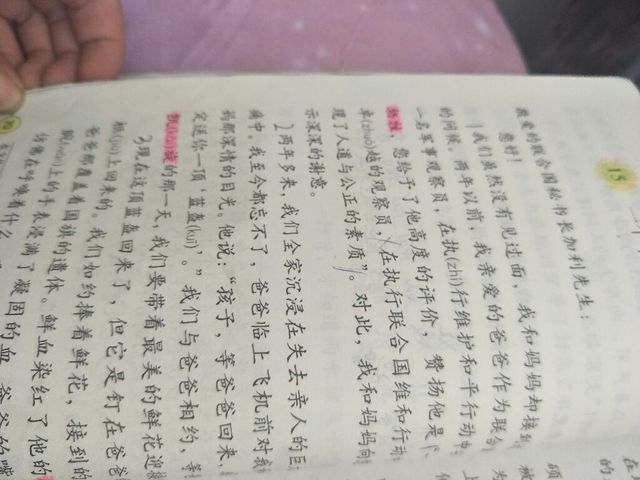 15
敬爱的联合国秘书长加利先生：
您好！
1我们虽然没有见过面，我和妈妈却接到
的问候。两年以前，我亲爱的爸爸作为联合
一名军事观察员，在执(zhí)行维护和平行动中
牺牲。您给予了他高度的评价，赞扬他是“
卓(zhuó)越的观察员，在执行联合国维和行动
现了人道与公正的素质”。对此，我和妈妈向
示深深的谢意。
2两年多来，我们全家沉浸在失去亲人的巨
痛中。我至今都忘不了，爸爸临上飞机前对我
妈那深情的目光。他说：“孩子，等爸爸回来，
定送你一顶‘蓝盔(kuī)’。”我们与爸爸相约，等
凯(kǎi)旋的那一天，我们要带着最美的鲜花迎接
3现在这顶蓝盔回来了，但它是钉在爸爸
柩(jiù)上回来的。我们如约捧着鲜花，接到的
爸爸那覆盖着国旗的遗体。鲜血染红了他的
腕(wàn)上的手表浸满了凝固的血，爸爸的嘴
仿佛在呼唤着什么